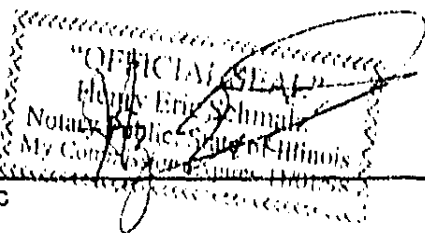 "OFFICIAL SEAL"
Henry Eric Schmalz
Notary Public, State of Illinois
My Commission Expires
c